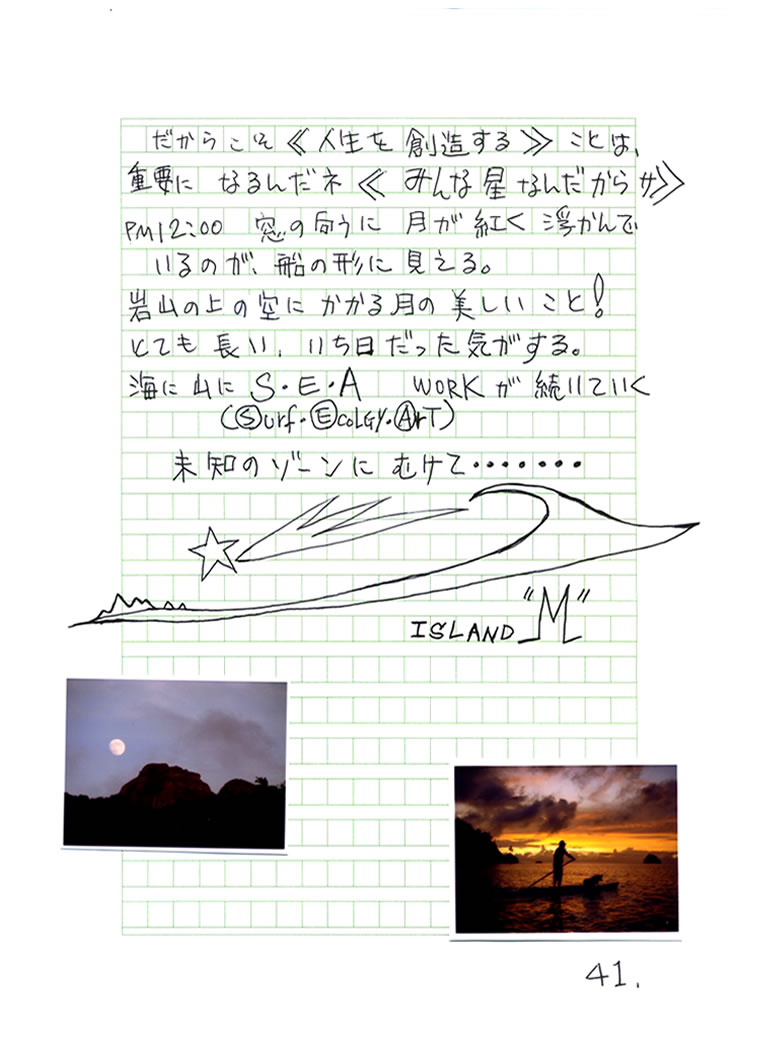 だからこそ≪人生を創造する≫ことは、
重要になるんだネ≪みんな星なんだからサ≫
PM12:00 窓の向うに月が紅く浮かんで
いるのが、船の形に見える。
岩山の上の空にかかる月の美しいこと！
とても長い、いち日だった気がする。
海に山にS・E・A WORKが続いていく
(Surf・EcoLGY・ArT)
未知のゾーンにむけて・・・・・・・
ISLAND "M"
41.